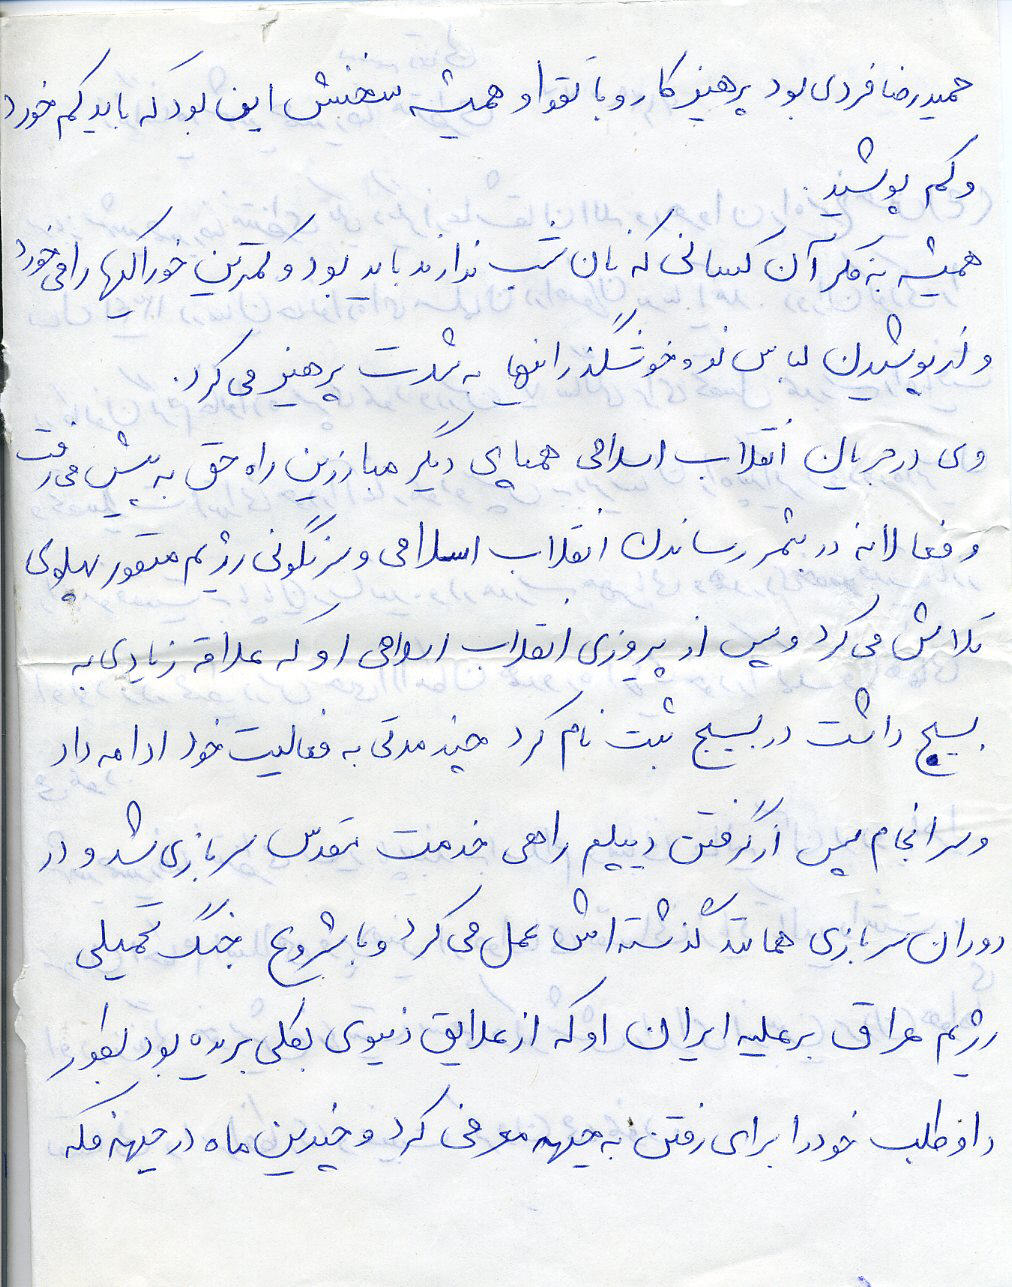 حمیدرضا فردی بود پرهیزکار و با تقوا و همیشه سخنش این بود که باید کم خورد
و کم پوشید.
همیشه به فکر آن کسانی که نان شب ندارند باید بود و کمترین خوراکیها را می خورد
و از پوشیدن لباس نو و خوشگذرانیها به شدت پرهیز می کرد.
وی در جریان انقلاب اسلامی همپای دیگر مبارزین راه حق به پیش می رفت
و فعالانه در بثمر رساندن انقلاب اسلامی و سرنگونی رژیم منفور پهلوی
تلاش می کرد و پس از پیروزی انقلاب اسلامی او که علاقه زیادی به
بسیج داشت در بسیج ثبت نام کرد چند مدتی به فعالیت خود ادامه داد
و سرانجام پس از گرفتن دیپلم راهی خدمت مقدس سربازی شد و در
دوران سربازی همانند گذشته اش عمل می کرد و با شروع جنگ تحمیلی
رژیم عراق بر علیه ایران او که از علایق دنیوی بکلی بریده بود بطور
داوطلب خود را برای رفتن به جبهه معرفی کرد و چندین ماه در جبهه فکه